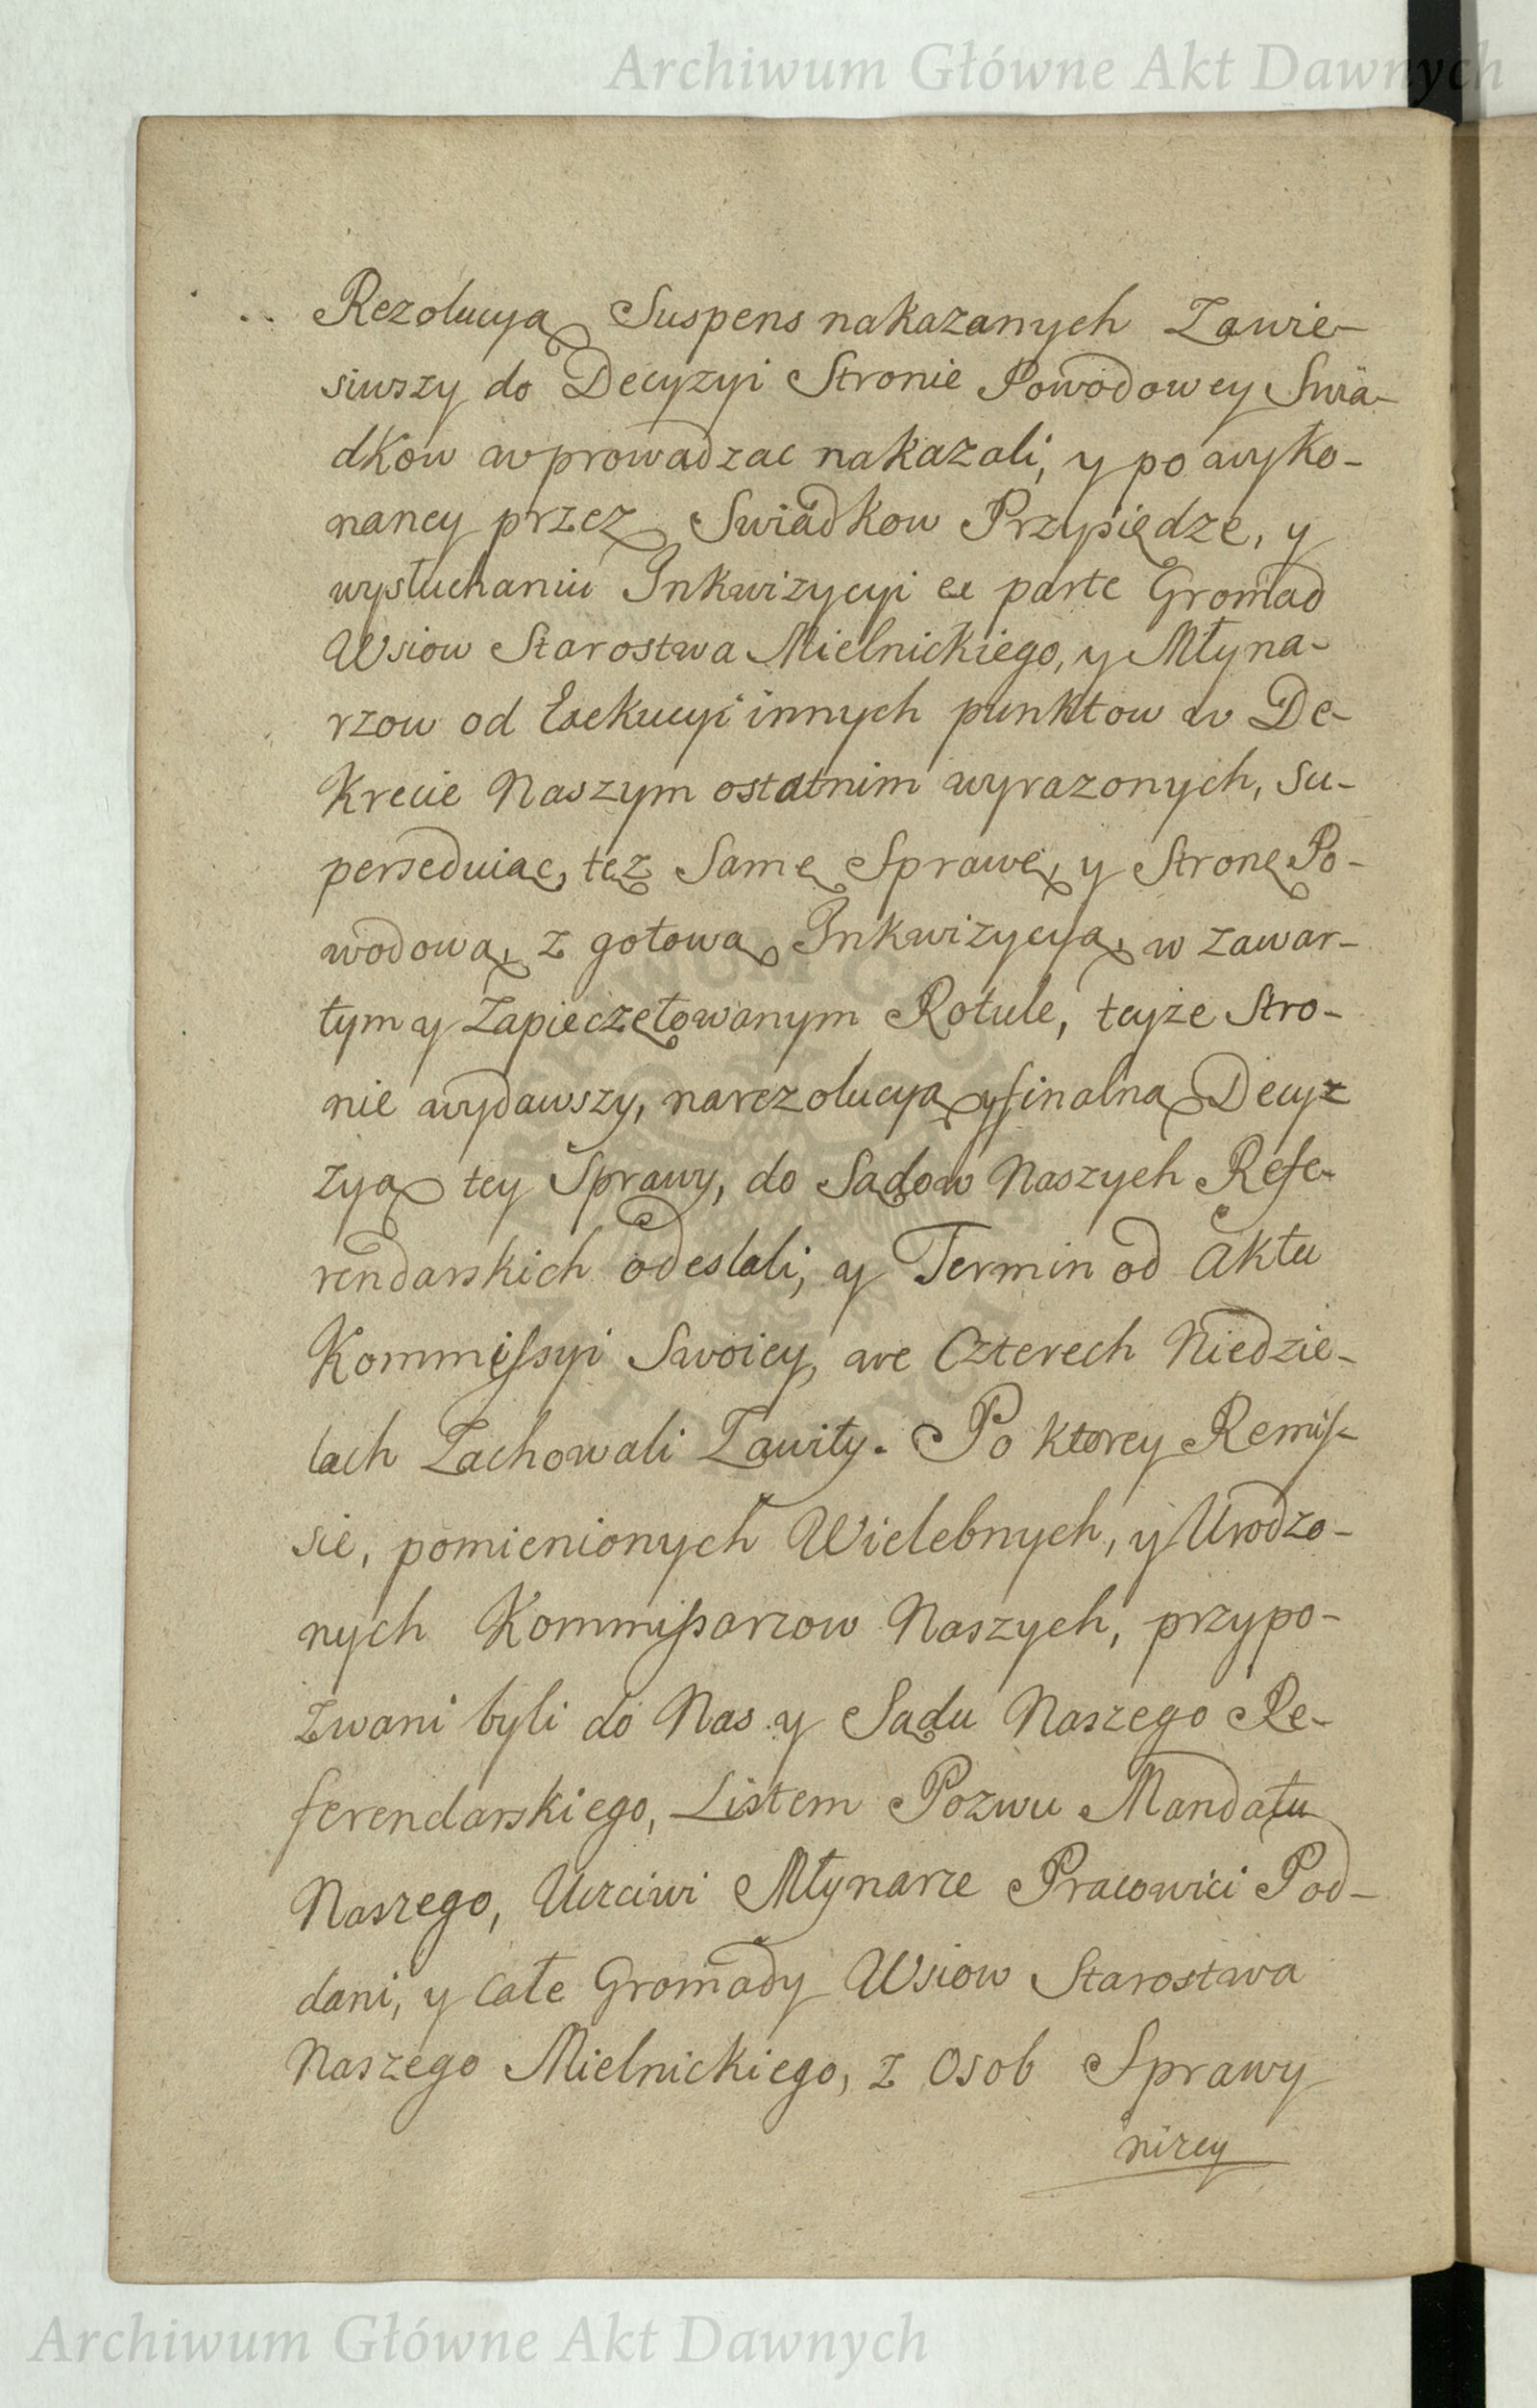 Archiwum Główne Akt Dawnych
Rezolucyą Suspens nakazanych Zawie-
siwszy do Decyzyi Stronie Powodowey Swia-
dkow wprowadzac nakazali, y po wyko-
naney przez Swiadkow Przysiędze, y
wysłuchaniu Inkwizycyi ex parte Gromad
Wsiow Starostwa Mielnickiego, y Młyna-
rzow od Exekucyi innych punktow w De-
krecie Naszym ostatnim wyrazonych, su-
perseduiąc, tez Samę Sprawę, y Stronę Po-
wodową, z gotową Inkwizycyą, w zawar-
tym y Zapieczętowanym Rotule, teyże Stro-
nie wydawszy, na rezolucyą y finalną Decyz
zyą tey Sprawy, do Sądow Naszych Refe-
rendarskich odeslali, y Termin od Aktu
Kommissyi Swoiey, we Czterech Niedzie-
lach Zachowali Zawity. Po ktorey Remis-
sie, pomienionych Wielebnych, y Urodzo-
nych Kommissarzow Naszych, przypo-
zwani byli do Nas y Sądu Naszego Re-
ferendarskiego, Listem Pozwu Mandatu
Naszego, Uczciwi Młynarze Pracowici Pod-
dani, y całe Gromady Wsiow Starostwa
Naszego Mielnickiego, z Osob Sprawy
nizey
Archiwum Główne Akt Dawnych